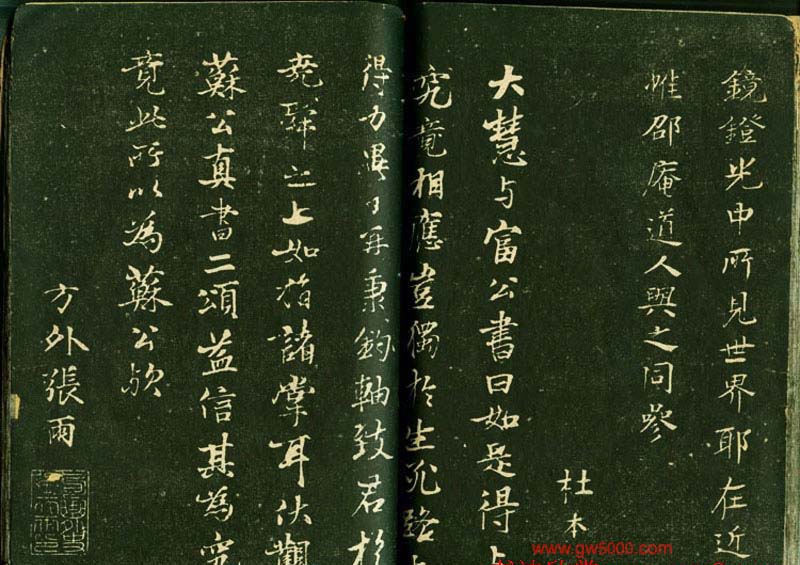 鏡鐙光中所見世界耶在近
惟邵庵道人與之同參
杜本
大慧与富公書曰如是得
究竟相應豈獨於生死路
得力異日再秉鈞軸致君於
堯舜之上如指諸掌耳伏觀
蘇公真書二頌益信其為究
竟此所以為蘇公歟
方外張雨
www.gw5000.com